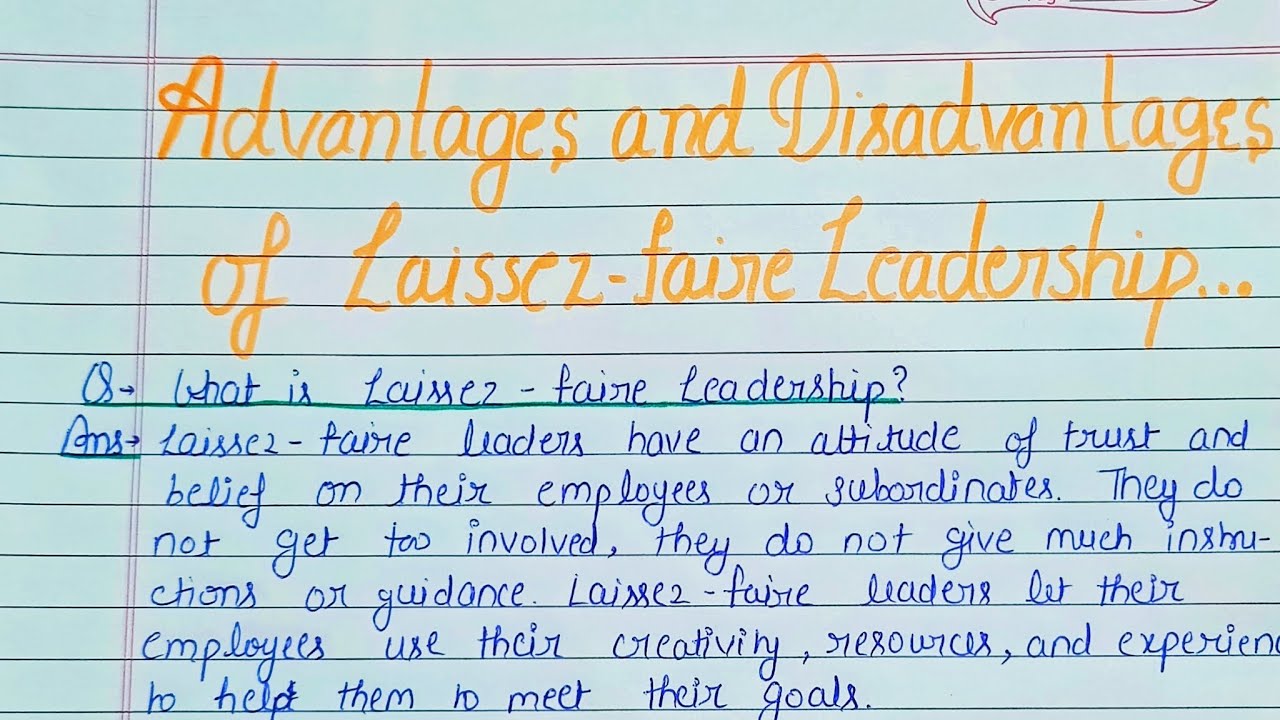 Advantages and Disadvantages
of Laissez-faire Leadership...
Q→ What is Laissez-faire Leadership?
Ans→ Laissez-faire leaders have an attitude of trust and
belief on their employees or subordinates. They do
not get too involved, they do not give much instru-
ctions or guidance. Laissez-faire leaders let their
employees use their creativity, resources, and experienc
to help them to meet their goals.